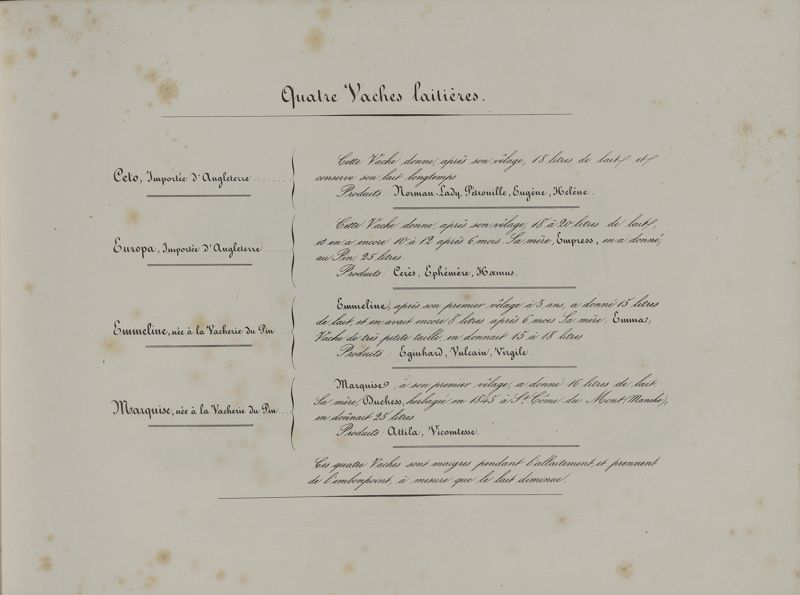 Quatre Vaches laitières.
Ceto, Importée d'Angleterre........
Cette Vache donne, après son vêlage, 18 litres de lait et
conserve son lait longtemps
Produits: Norman-Lady, Pétrouille, Eugène, Helène.
Europa, Importée d'Angleterre......
Cette Vache donne, après son vêlage, 18 à 20 litres de lait,
et en a encore 10 à 12 après 6 mois Sa mère, Empress, en a donné,
au Pin, 25 litres
Produits: Cerès, Ephémère, Hœmus.
Emmeline, née à la Vacherie du Pin....
Emmeline, après son premier vêlage à 3 ans, a donné 15 litres
de lait, et en avait encore 8 litres après 6 mois Sa mère, Emma,
Vache de très petite taille, en donnait 15 à 18 litres.
Produits: Eginhard, Vulcain, Virgile.
Marquise, née à la Vacherie du Pin....
Marquise, à son premier vêlage, a donné 16 litres de lait.
Sa mère, Duchess, herbagée en 1845 à St Côme du Mont (Manche),
en donnait 25 litres
Produits Attila, Vicomtesse.
Ces quatre Vaches sont maigres pendant l'allaitement, et prennent
de l'embonpoint, à mesure que le lait diminue.